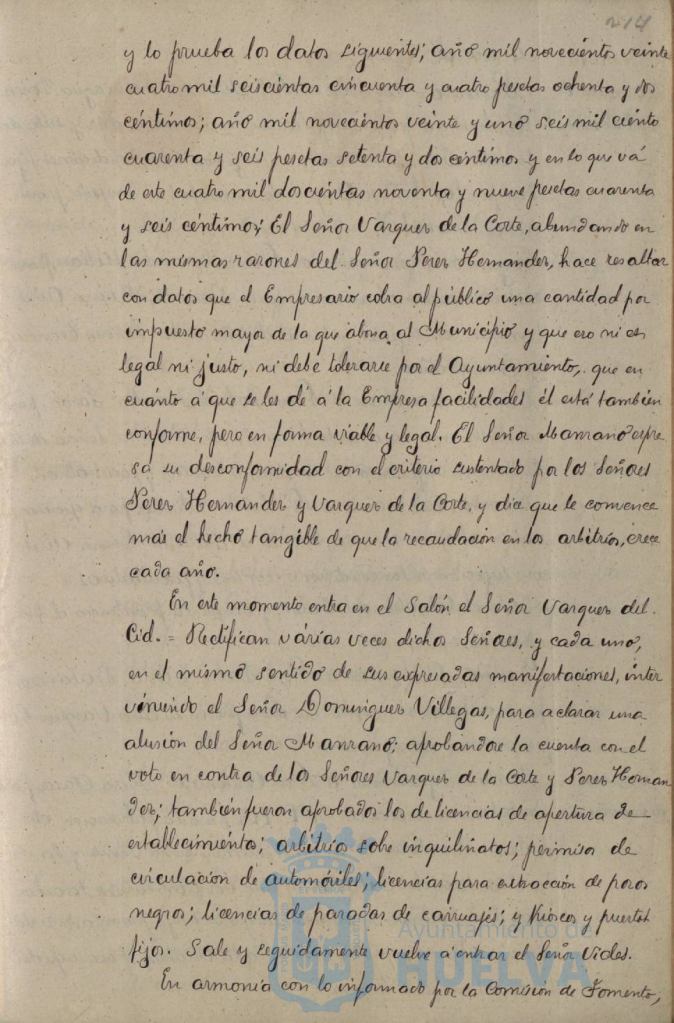 214
y lo prueba los datos siguientes; año mil novecientos veinte
cuatro mil seiscientas cincuenta y cuatro pesetas ochenta y dos
céntimos; año mil novecientos veinte y uno seis mil ciento
cuarenta y seis pesetas setenta y dos centimos y en lo que vá
de este cuatro mil doscientas noventa y nueve pesetas cuarenta
y seis céntimos; El Señor Vazquez de la Corte, abundando en
las mismas razones del Señor Perez Hernandez, hace resaltar
con datos que el Empresario cobra al público una cantidad por
impuesto mayor de la que abona al Municipio y que eso ni es
legal ni justo, ni debe tolerarse por el Ayuntamiento, que en
cuánto á que se les dé á la Empresa facilidades él está también
conforme, pero en forma viable y legal. El Señor Manzano expre
sa su desconformidad con el criterio sustentado por los Señores
Perez Hernandez y Vazquez de la Corte, y dice que le convence
más el hecho tangible de que la recaudación en los arbitrios, crece
cada año.
En este momento entra en el Salón el Señor Vazquez del
Cid. = Rectifican várias veces dichos Señores, y cada uno,
en el mismo sentido de sus expresadas manifestaciones, inter
viniendo el Señor Dominguez Villegas, para aclarar una
alusión del Señor Manzano; aprobandose la cuenta con el
voto en contra de los Señores Vazquez de la Corte y Perez Hernan
dez; también fueron aprobados los de licencias de apertura de
establecimientos; arbitrios sobre inquilinatos; permisos de
circulación de automóviles; licencias para extracción de pozos
negros; licencias de paradas de carruajes; y Kioscos y puestos
fijos. Sale y seguidamente vuelve á entrar el Señor Vides.
En armonia con lo informado por la Comisión de Fomento,
Ayuntamiento de
HUELVA